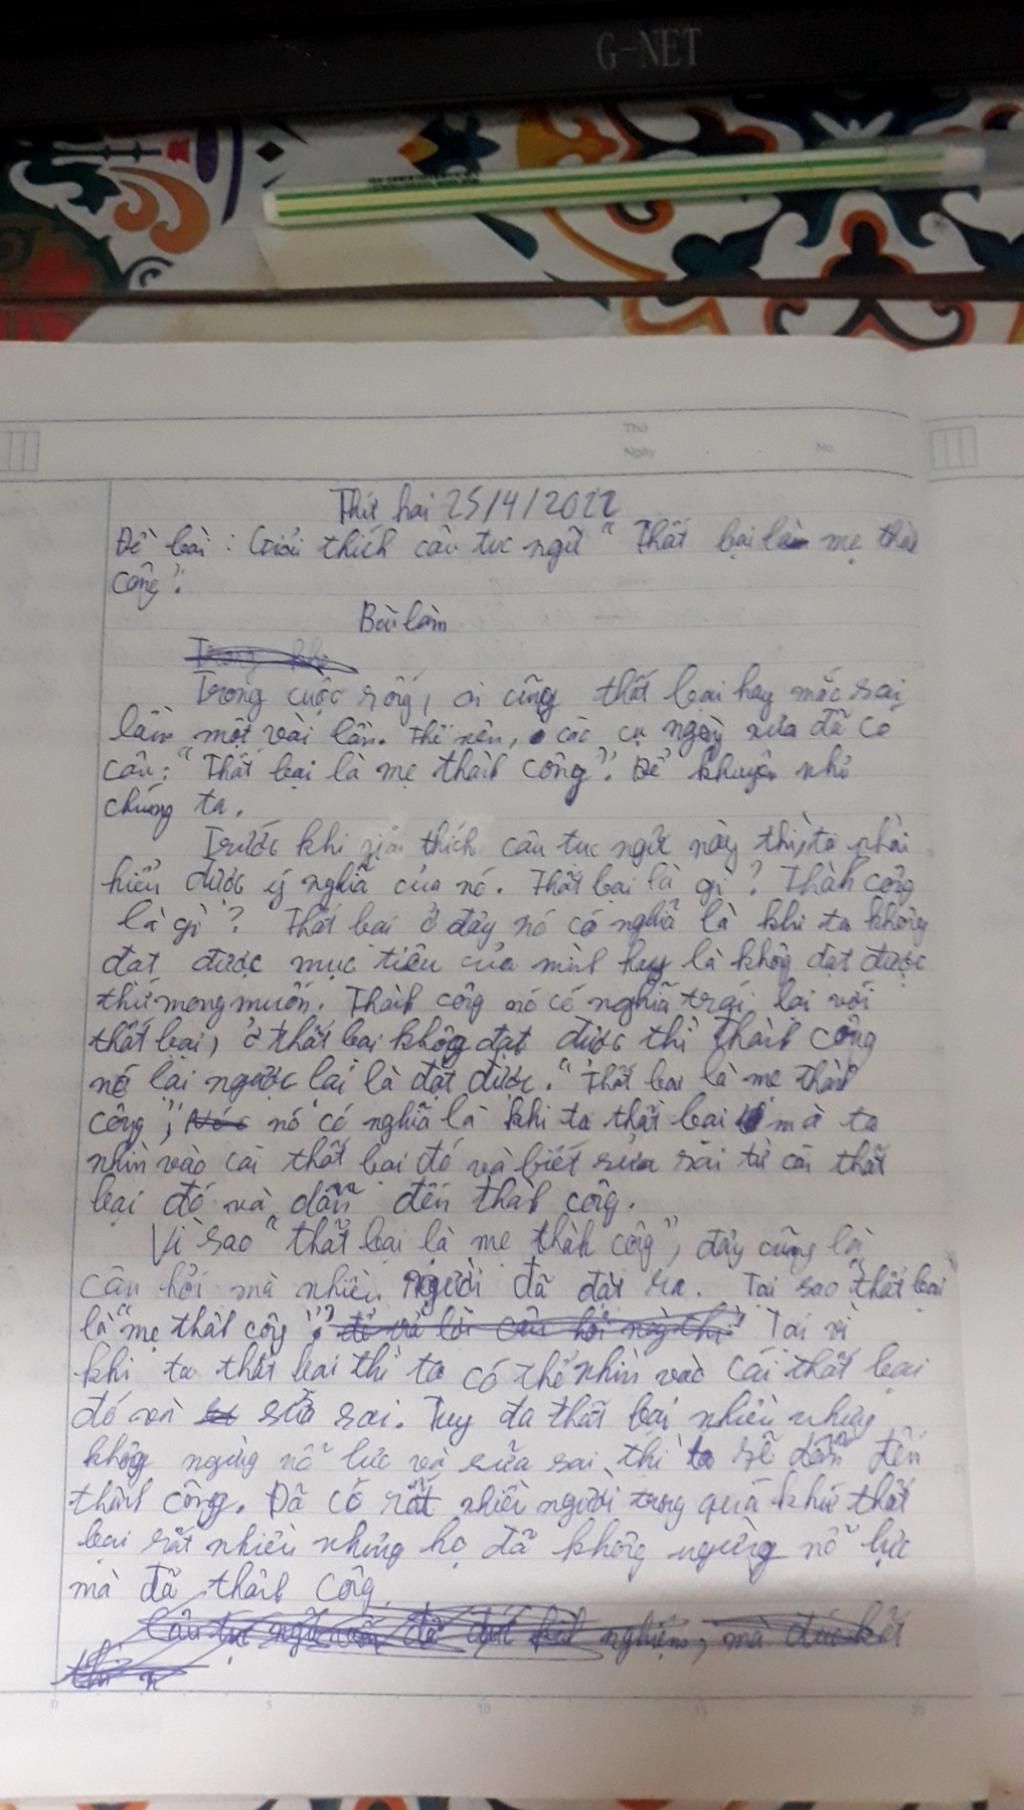 G-NET
Thứ
Ngày
No.
Thứ hai 25/4/2022
Đề bài : Giải thích câu tục ngữ " Thất bại là mẹ thành
công".
Bài làm
Trong cuộc sống, ai cũng thất bại hay mắc sai
lầm một vài lần. Thế nên, các cụ ngày xưa đã có
câu: " Thất bại là mẹ thành công". Để khuyên nhủ
chúng ta.
Trước khi giải thích câu tục ngữ này thì ta phải
hiểu được ý nghĩa của nó. Thất bại là gì ? Thành công
là gì ? Thất bại ở đây nó có nghĩa là khi ta không
đạt được mục tiêu của mình hay là không đạt được
thứ mong muốn. Thành công nó có nghĩa trái lại với
thất bại, ở thất bại không đạt được thì thành công
nó lại ngược lại là đạt được. " Thất bại là mẹ thành
công", nó có nghĩa là khi ta thất bại mà ta
nhìn vào cái thất bại đó và biết sửa sai từ cái thất
bại đó và dẫn đến thành công.
Vì sao " thất bại là mẹ thành công", đây cũng là
câu hỏi mà nhiều người đã đặt ra. Tại sao thất bại
là "mẹ thành công"? Tại vì
khi ta thất bại thì ta có thể nhìn vào cái thất bại
đó và sửa sai. Tuy đã thất bại nhiều nhưng
không ngừng nỗ lực và sửa sai thì ta sẽ dẫn đến
thành công. Đã có rất nhiều người trong quá khứ thất
bại rất nhiều nhưng họ đã không ngừng nỗ lực
mà đã thành công
0 5 10 15 20